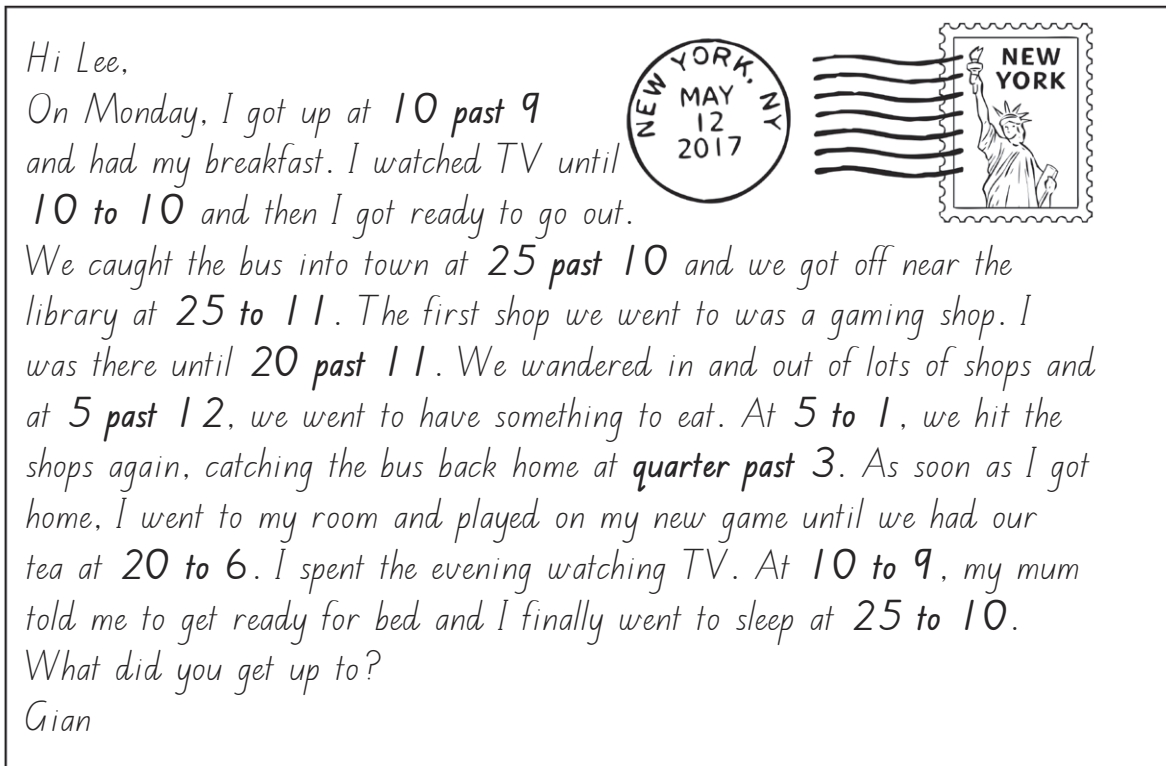 Hi Lee,
On Monday, I got up at 10 past 9
and had my breakfast. I watched TV until
10 to 10 and then I got ready to go out.
We caught the bus into town at 25 past 10 and we got off near the
library at 25 to 11. The first shop we went to was a gaming shop. I
was there until 20 past 11. We wandered in and out of lots of shops and
at 5 past 12, we went to have something to eat. At 5 to 1, we hit the
shops again, catching the bus back home at quarter past 3. As soon as I got
home, I went to my room and played on my new game until we had our
tea at 20 to 6. I spent the evening watching TV. At 10 to 9, my mum
told me to get ready for bed and I finally went to sleep at 25 to 10.
What did you get up to?
Gian
NEW YORK, NY
MAY
12
2017
NEW
YORK